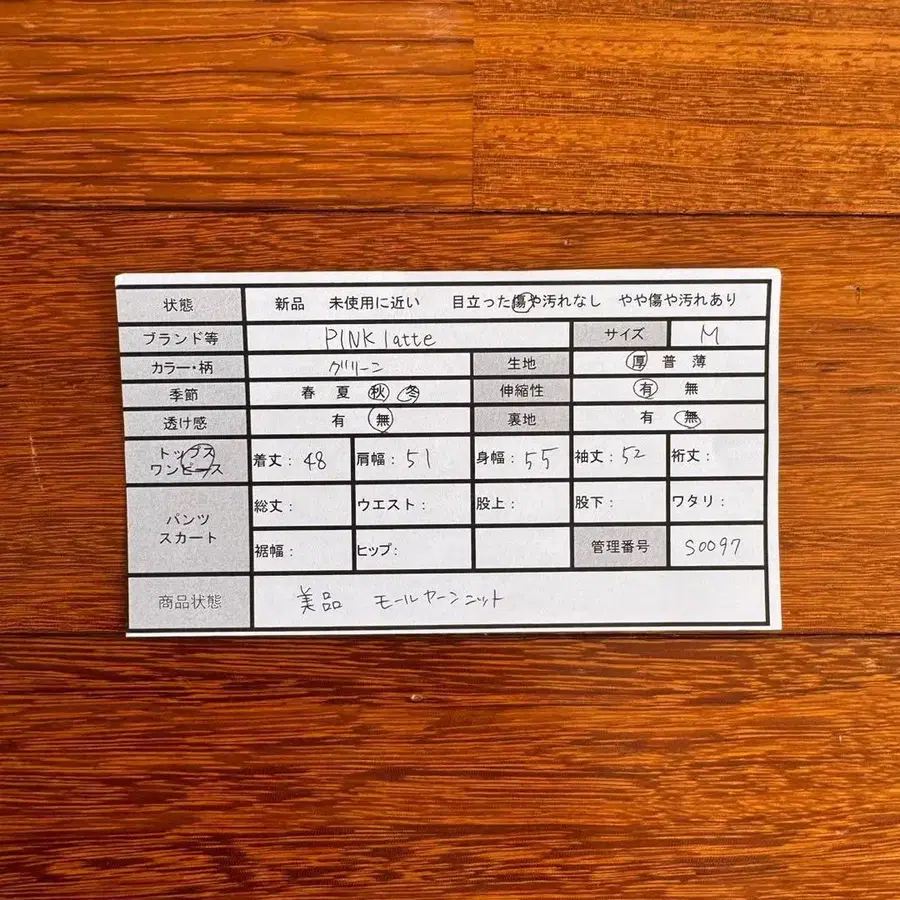 状態 新品 未使用に近い 目立った傷や汚れなし やや傷や汚れあり
ブランド等 PINK latte サイズ M
カラー・柄 グリーン 生地 厚 普 薄
季節 春 夏 秋 冬 伸縮性 有 無
透け感 有 無 裏地 有 無
トップス
ワンピース
着丈: 48 肩幅: 51 身幅: 55 袖丈: 52 裄丈:
パンツ
スカート
総丈: ウエスト: 股上: 股下: ワタリ:
裾幅: ヒップ: 管理番号 S0097
商品状態 美品 モールヤーンニット